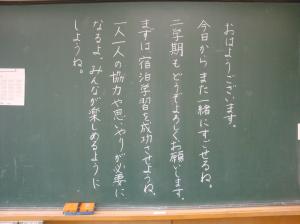 おはようございます。
今日からまた一緒にすごせるね。
二学期もどうぞよろしくお願いします。
まずは宿泊学習を成功させようね。
一人一人の協力や思いやりが必要に
なるよ。みんなが楽しめるように
しようね。